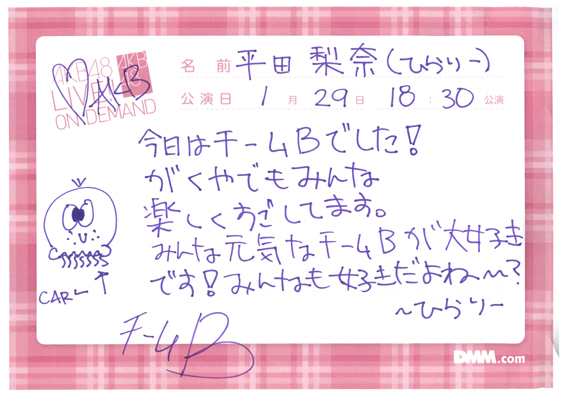 AKB48 AKB
LIVE!!
ON DEMAND
AKB
名前 平田 梨奈(ひらりー)
公演日 1月29日 18:30公演
今日はチームBでした!
がくやでもみんな
楽しくすごしてます。
みんな元気なチームBが大好き
です!みんなも好きだよね〜?
〜ひらりー
CARL
チームB
DMM.com